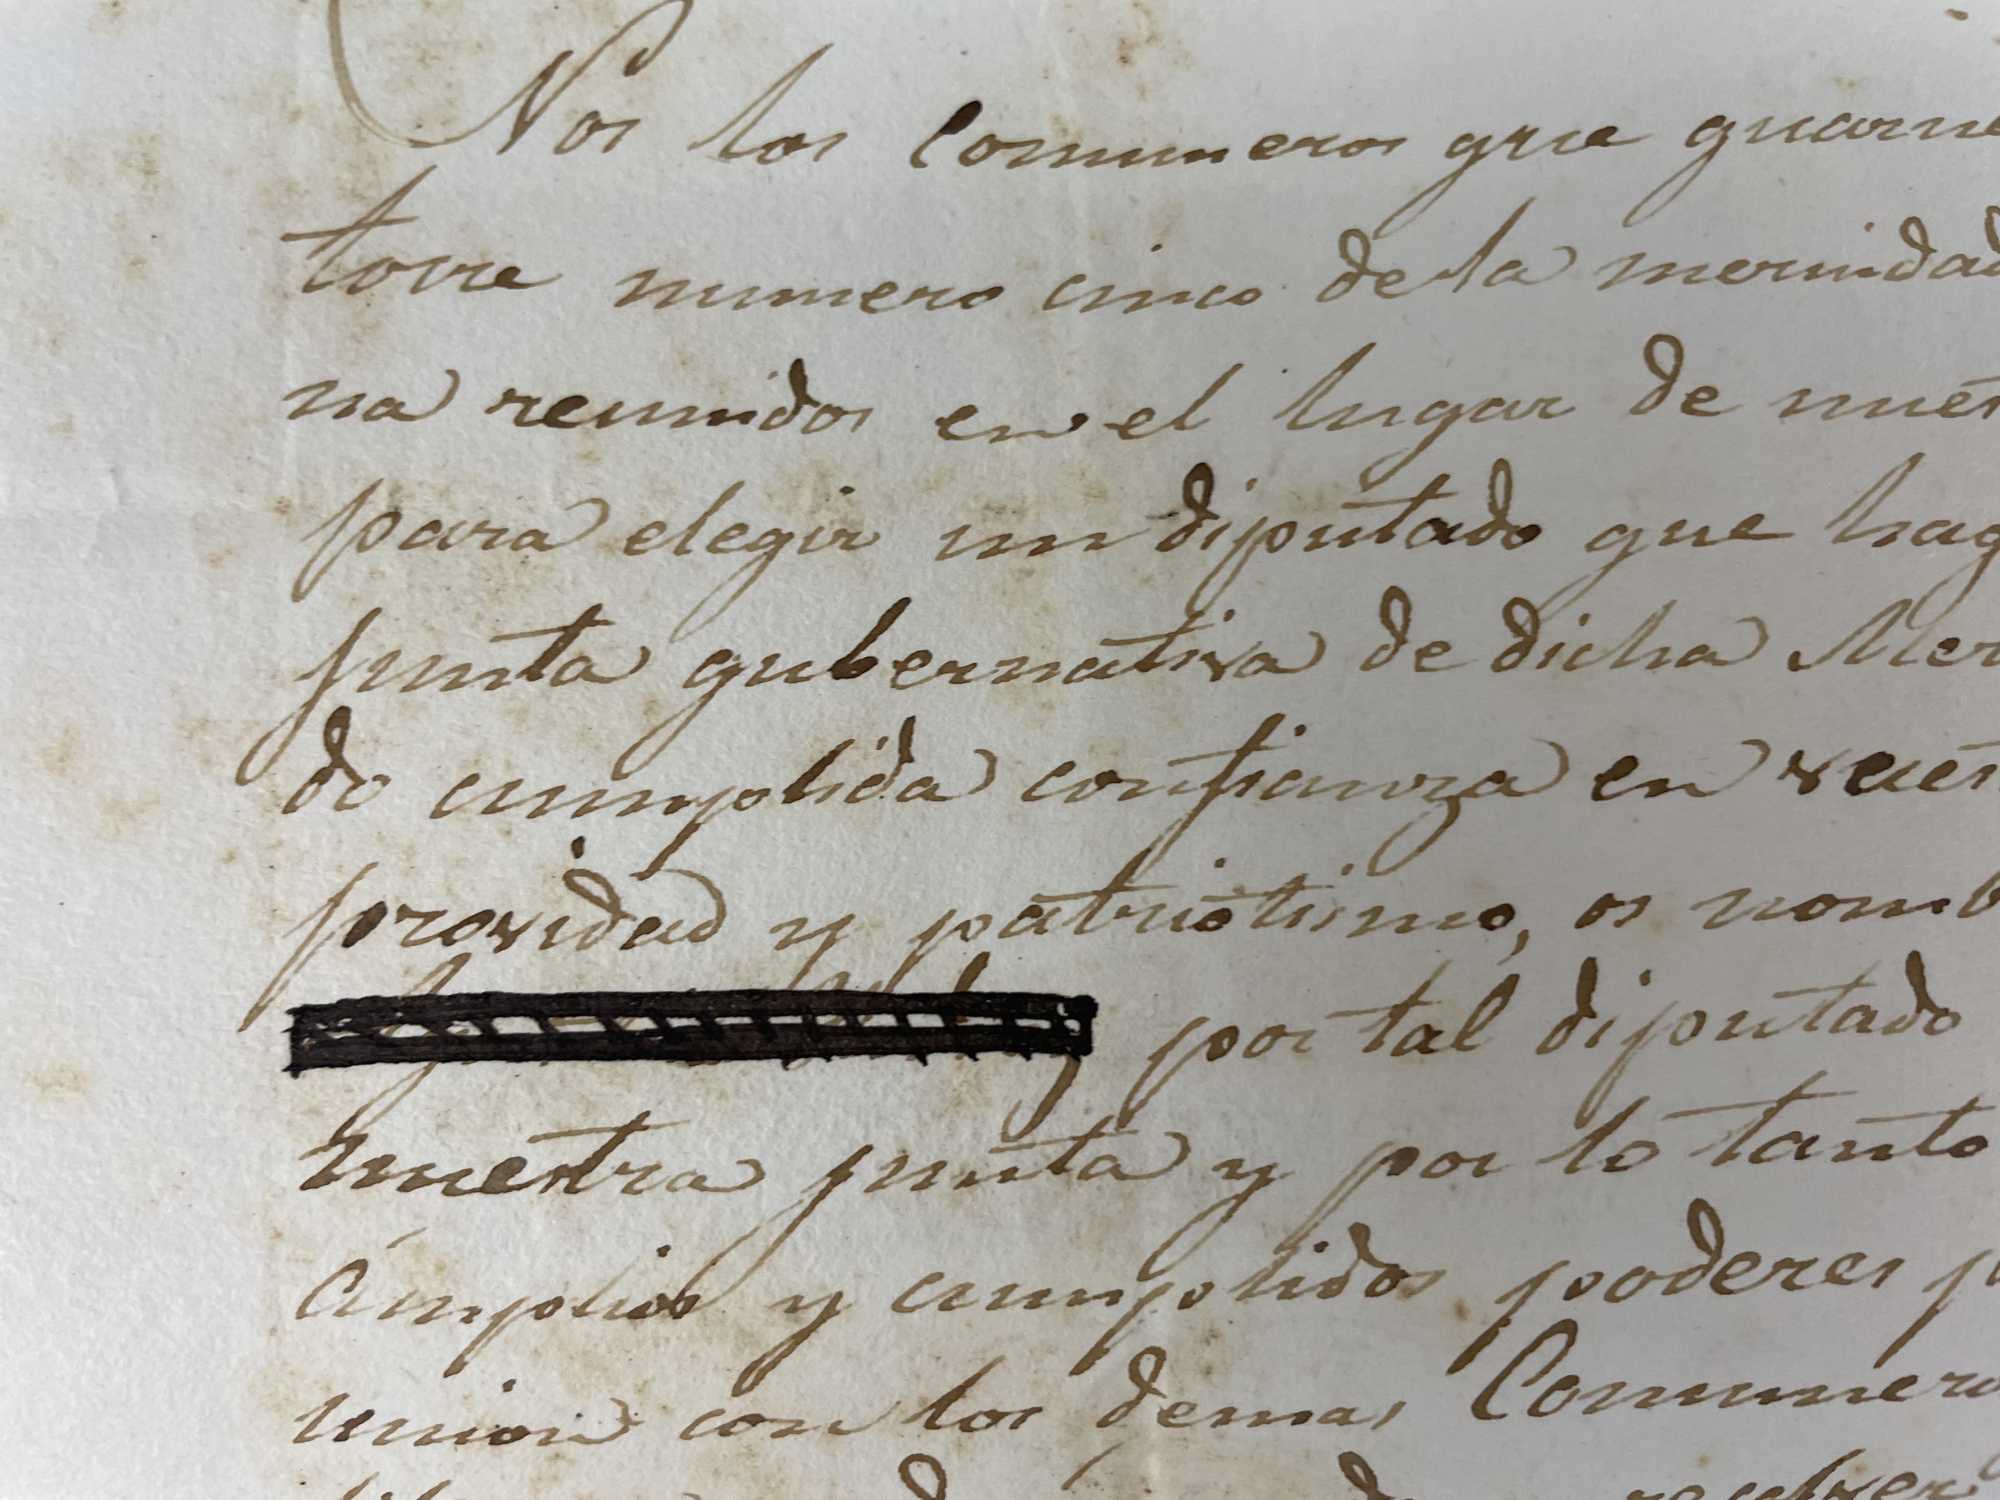 Nos los Comuneros que guarne
torre numero cinco de la merindad
na reunidos en el lugar de nues
para elegir un diputado que hag
junta gubernativa de dicha Mer
do cumplida confianza en vues
providad y patriotismo, os nomb
por tal diputado
nuestra junta y por lo tanto
ámplios y cumplidos poderes p
union con los demas Comunero
resolver